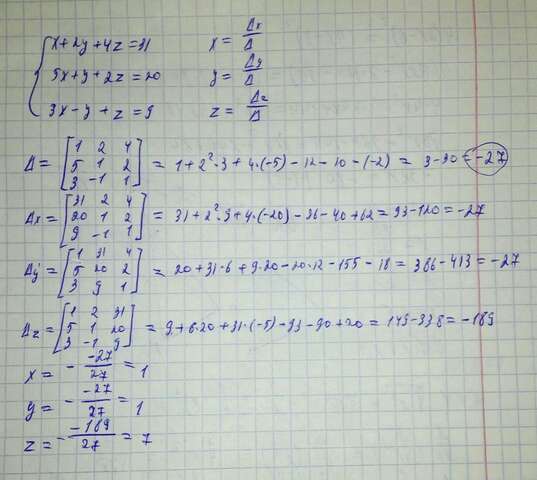 x+2y+4z=31 x = Δx/Δ
5x+y+2z=20 y = Δy/Δ
3x-y+z=9 z = Δz/Δ
Δ = [1 2 4; 5 1 2; 3 -1 1] = 1+2²·3+4·(-5)-12-10-(-2) = 3-30=-27
Δx = [31 2 4; 20 1 2; 9 -1 1] = 31+2²·9+4·(-20)-36-40+62=93-120=-27
Δy = [1 31 4; 5 20 2; 3 9 1] = 20+31·6+9·20-20·12-155-18=386-413=-27
Δz = [1 2 31; 5 1 20; 3 -1 9] = 9+6·20+31·(-5)-93-90+20=149-338=-189
x = - -27/27 = 1
y = - -27/27 = 1
z = - -189/27 = 7